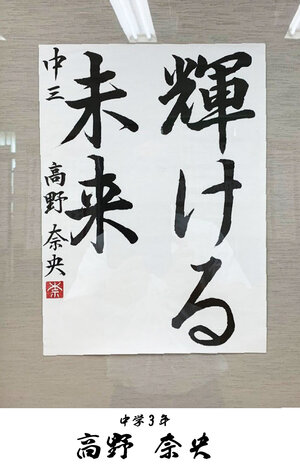 輝ける
未来
中三 高野奈央
奈
中学3年
高野 奈央